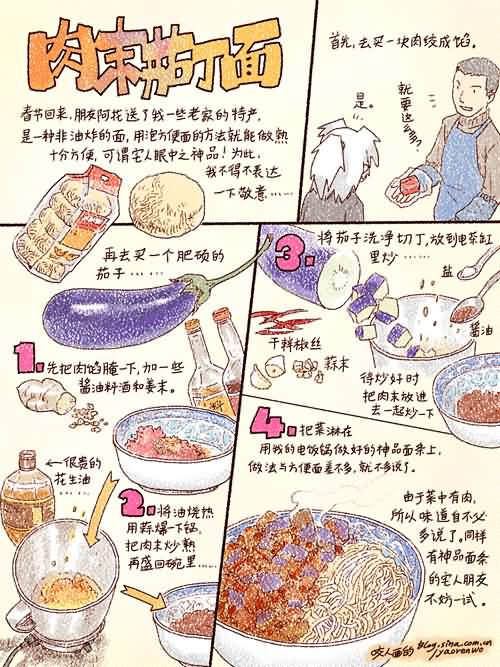 肉末茄丁面
春节回来,朋友阿花送了我一些老家的特产,
是一种非油炸的面,用泡方便面的方法就能做熟
十分方便,可谓宅人眼中之神品!为此,
我不得不表达
一下敬意……
首先,去买一块肉绞成馅。
是。
就要这么多?
再去买一个肥硕的
茄子……
1.先把肉馅腌一下,加一些
酱油料酒和姜末。
料
←很贵的
花生油
……
2.将油烧热
用蒜爆一下锅,
把肉末炒熟
再盛回碗里……
3.将茄子洗净切丁,放到电茶缸
里炒……
盐
酱油
干辣椒丝
蒜末
待炒好时
把肉末放进
去一起炒一下
4.把菜淋在
用我的电饭锅做好的神品面条上,
做法与方便面差不多,就不多说了。
由于菜中有肉,
所以味道自不必
多说了。同样
有神品面条
的宅人朋友
不妨一试。
咬人画的 blog.sina.com.cn
/yaorenwo